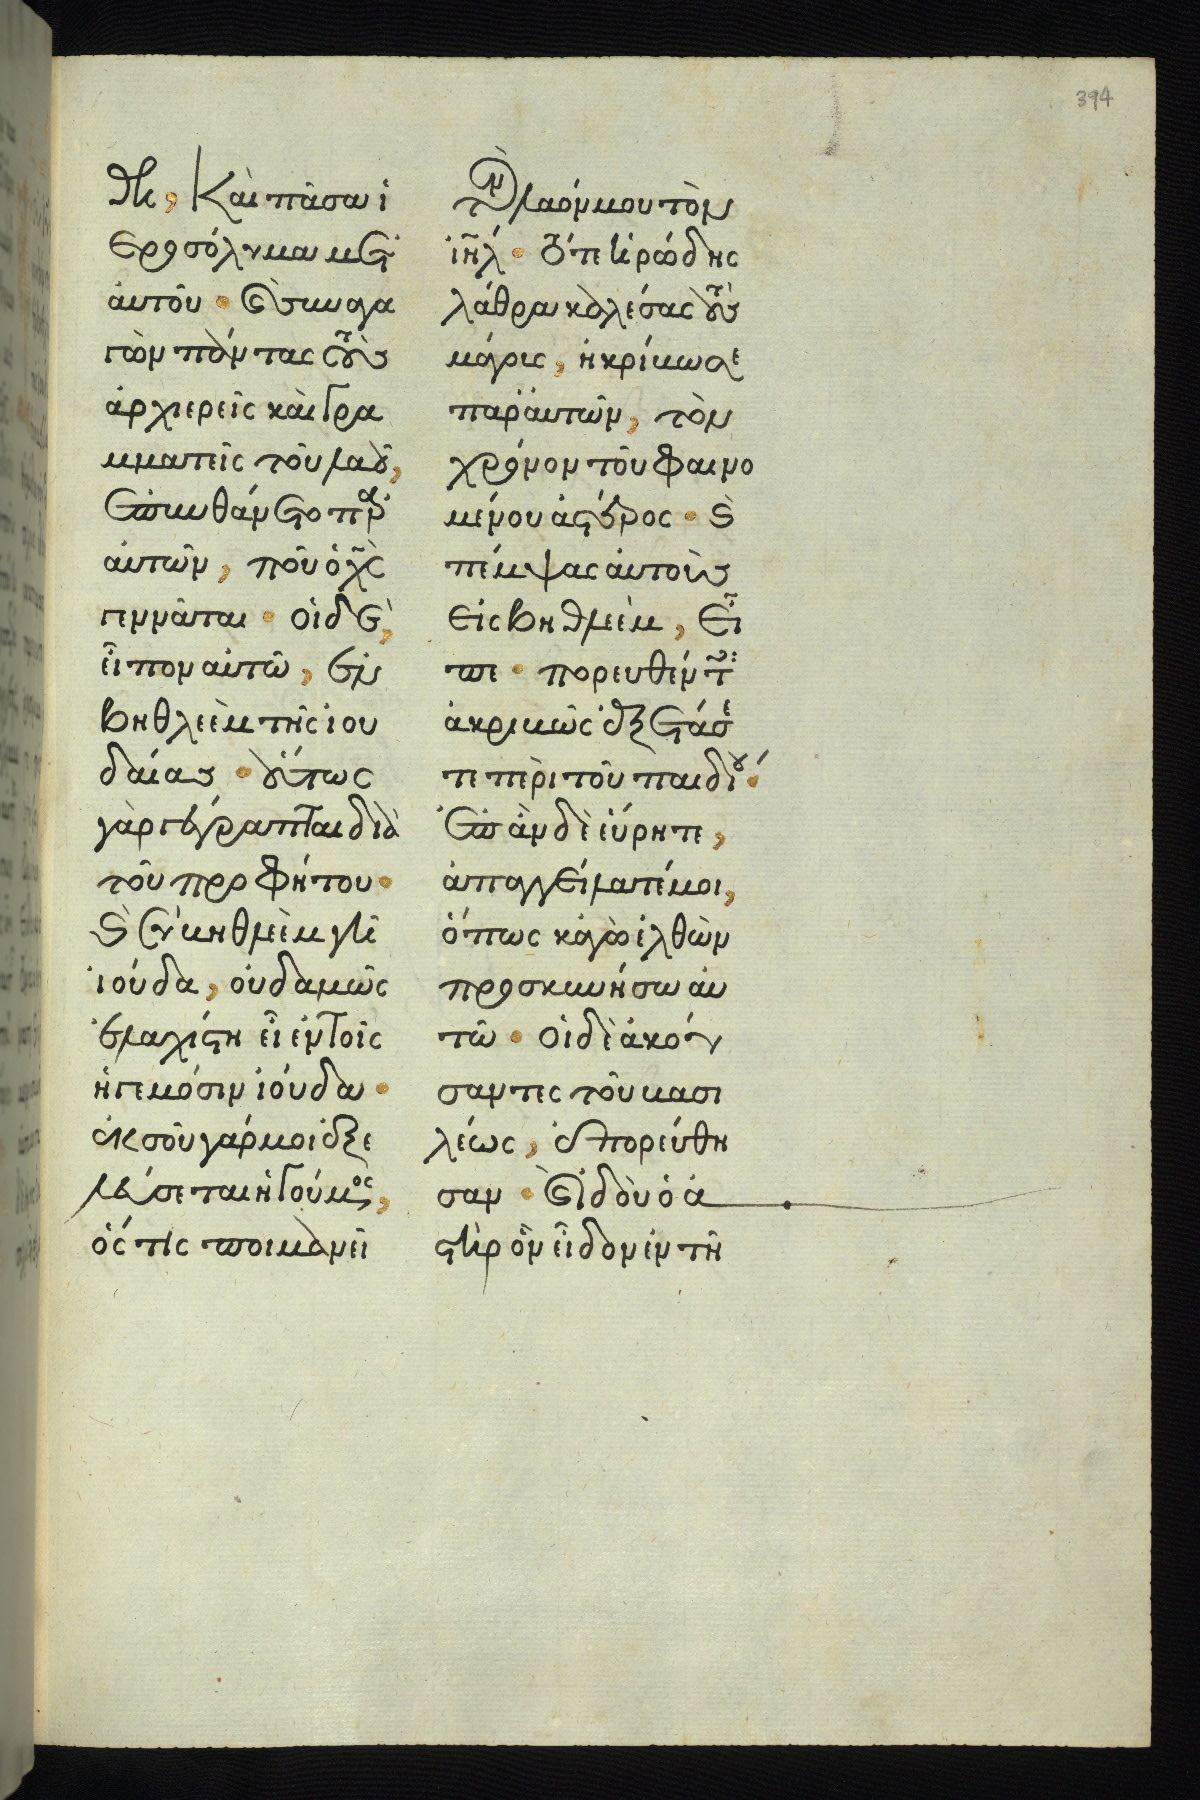 394
θη, Καὶ πᾶσα ἱ
εροσόλυμα μετ'
αὐτοῦ · καὶ συναγα
γὼν πάντας τοὺς
ἀρχιερεῖς καὶ γρα
μματεῖς τοῦ λαοῦ,
ἐπυνθάνετο παρ'
αὐτῶν, ποῦ ὁ χς
γεννᾶται · οἱ δὲ,
εἶπον αὐτῶ, ἐν
βηθλεὲμ τῆς ἰου
δαίας · οὕτως
γὰρ γέγραπται διὰ
τοῦ προφήτου ·
καὶ σὺ βηθλεὲμ γῆ
ἰούδα, οὐδαμῶς
ἐλαχίστη εἶ ἐν τοῖς
ἡγεμόσιν ἰούδα ·
ἐκ σοῦ γάρ μοι ἐξε
λεύσεται ἡγούμενος,
ὅστις ποιμανεῖ
τὸν λαόν μου τὸν
ιηλ · τότε ἡρώδης
λάθρα καλέσας τοὺς
μάγους, ἠκρίβωσε
παρ' αὐτῶν, τὸν
χρόνον τοῦ φαινο
μένου ἀστέρος · καὶ
πέμψας αὐτοὺς
εἰς βηθλεὲμ, εἶ
πε · πορευθέντες
ἀκριβῶς ἐξετάσα
τε περὶ τοῦ παιδίου ·
ἐπὰν δὲ εὕρητε,
ἀπαγγείλατέ μοι,
ὅπως κἀγὼ ἐλθὼν
προσκυνήσω αὐ
τῶ · οἱ δὲ ἀκού
σαντες τοῦ βασι
λέως, ἐπορεύθη
σαν · καὶ ἰδοὺ ὁ ἀ
στὴρ ὃν εἶδον ἐν τῆ